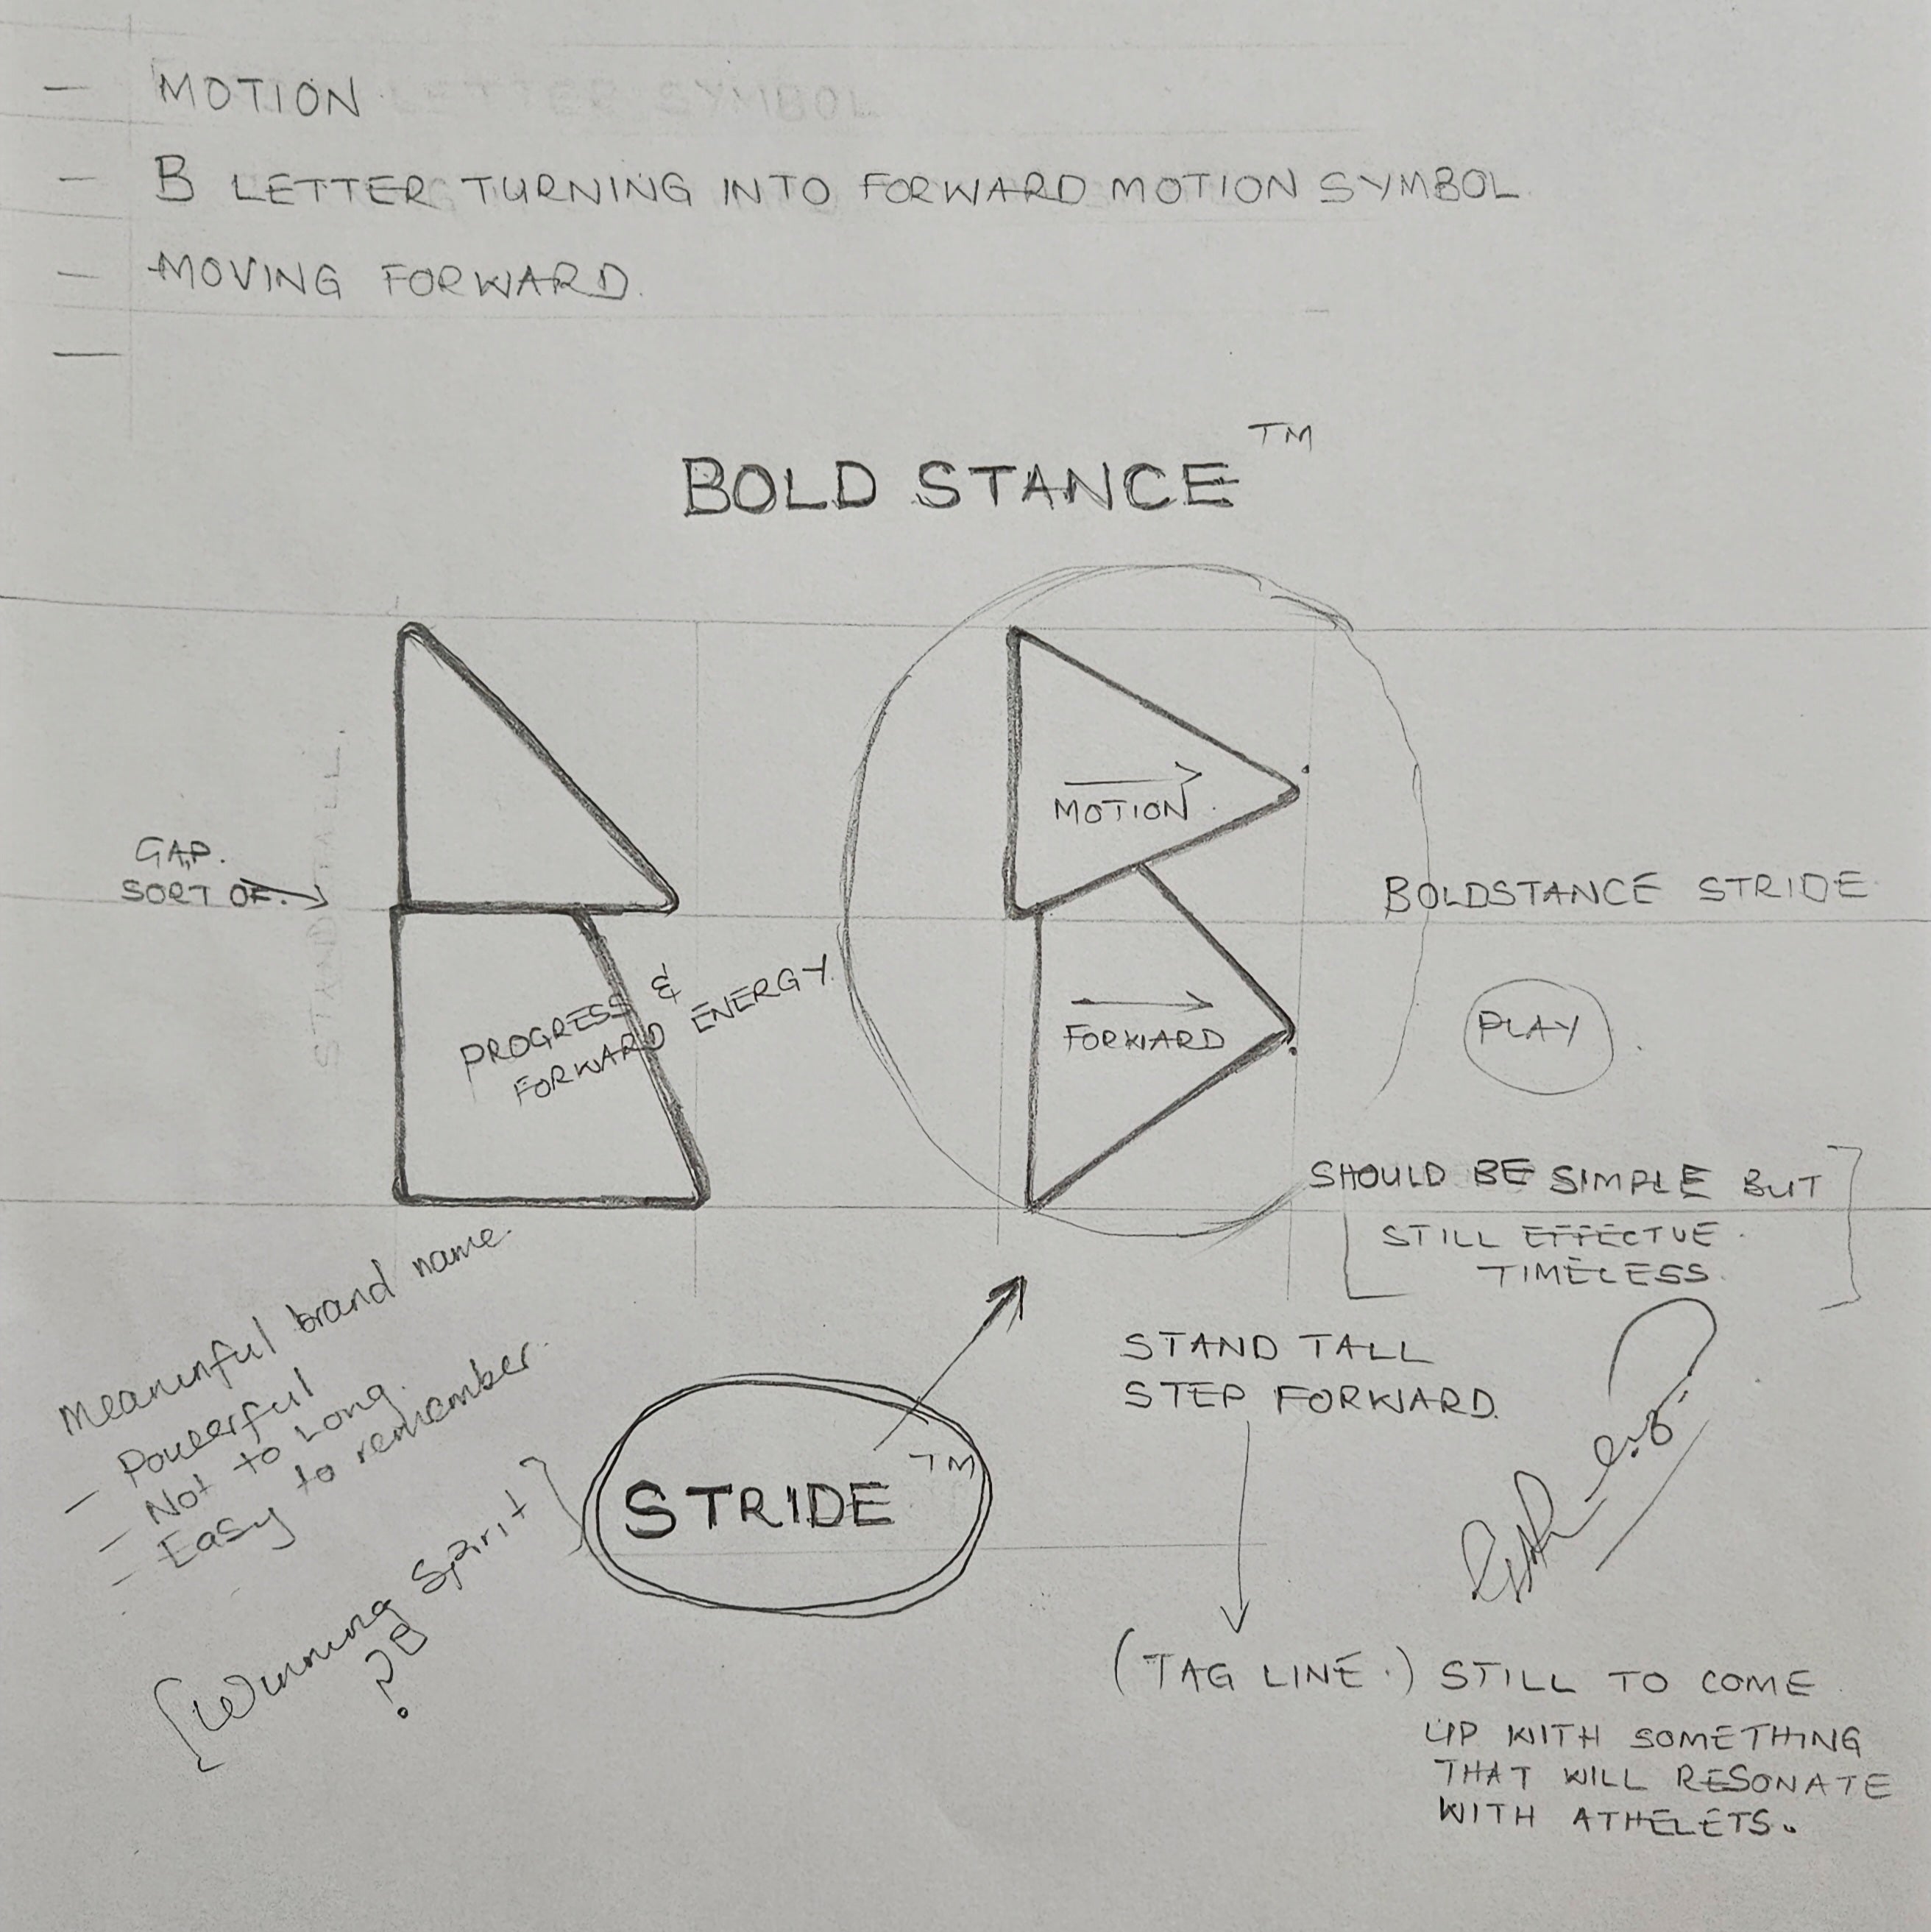 - MOTION
LETTER SYMBOL
- B LETTER TURNING INTO FORWARD MOTION SYMBOL
- MOVING FORWARD.
-
BOLD STANCE TM
GAP.
SORT OF.
PROGRESS &
FORWARD ENERGY
MOTION
FORWARD
BOLDSTANCE STRIDE
PLAY
SHOULD BE SIMPLE BUT
STILL EFFECTVE
TIMELESS.
Meaninful brand name
- Powerful
- Not to Long.
- Easy to remember.
[Winning Spirit]
STRIDE TM
STAND TALL
STEP FORWARD.
(TAG LINE.) STILL TO COME
UP WITH SOMETHING
THAT WILL RESONATE
WITH ATHELETS.